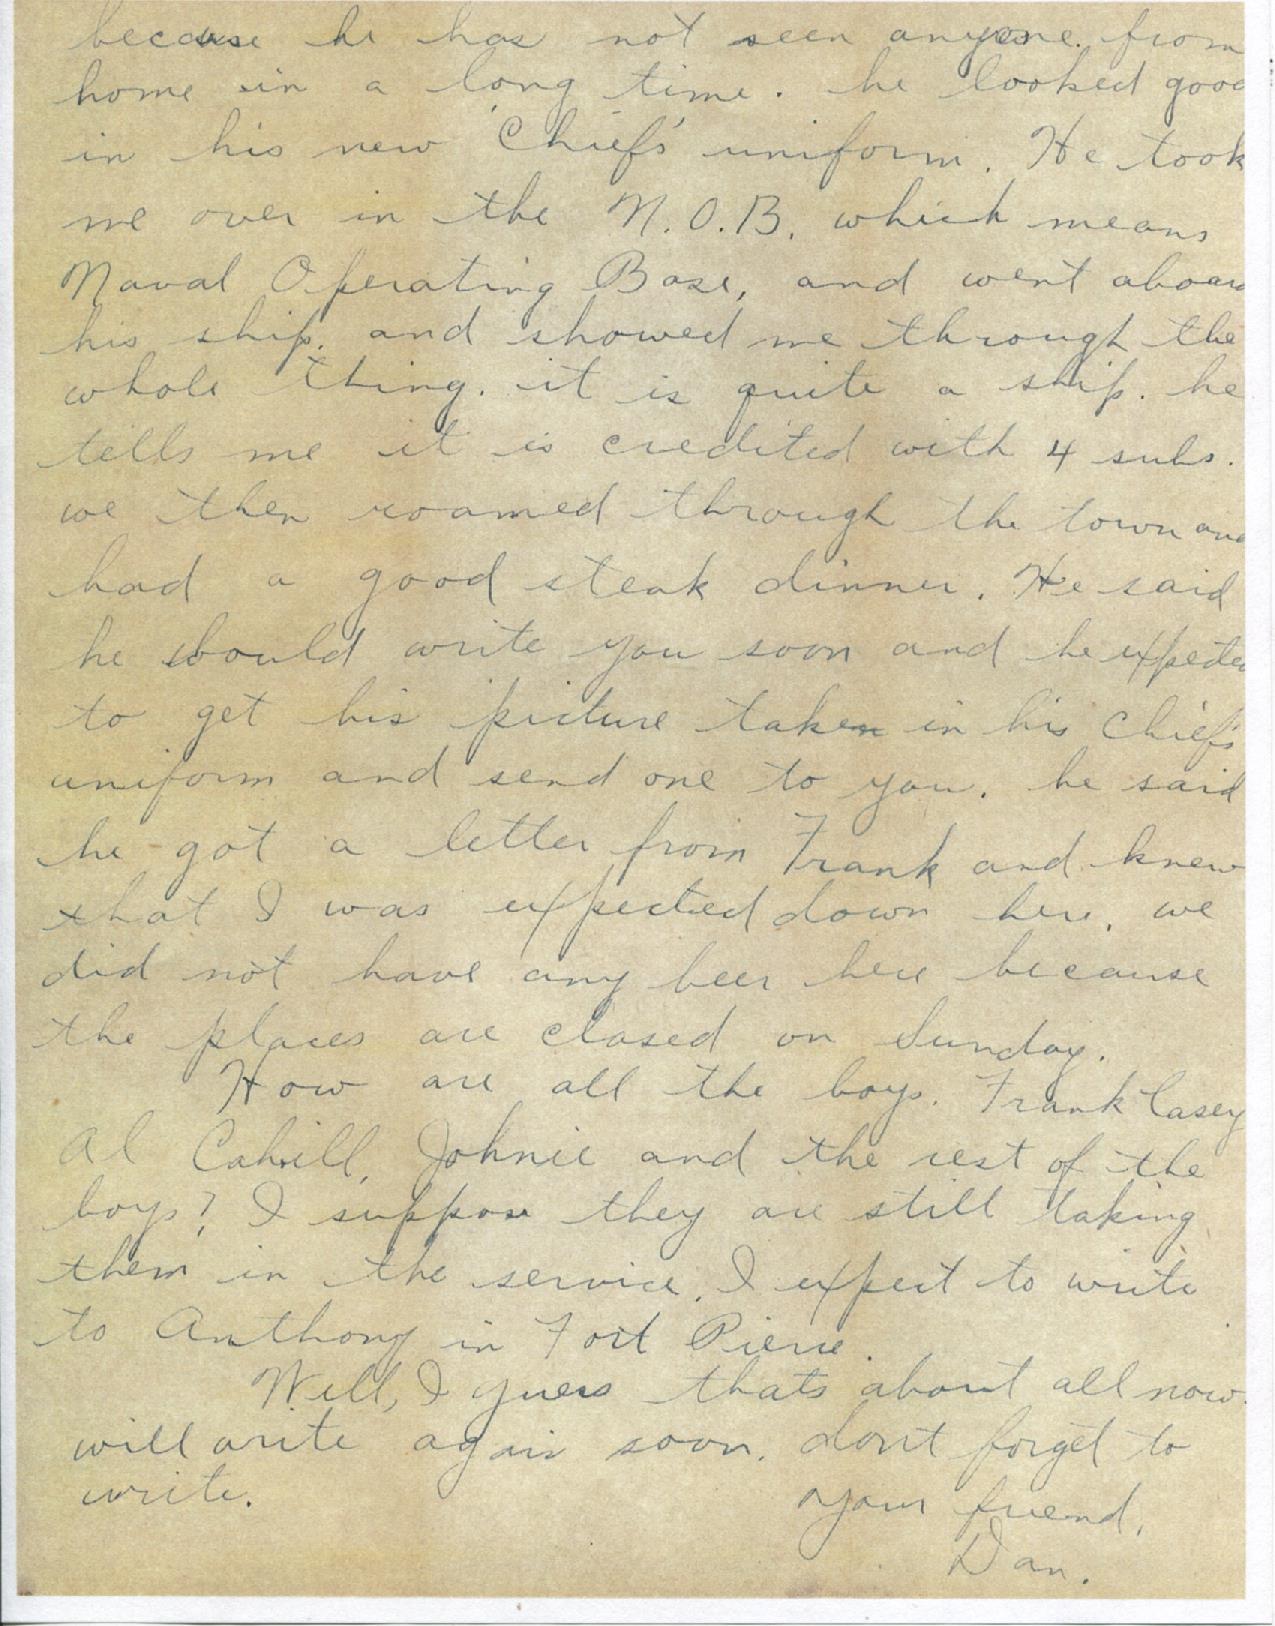 because he has not seen anyone. from
home in a long time. he looked good
in his new 'Chiefs' uniform. He took
me over in the N.O.B. which means
Naval Operating Base, and went aboard
his ship. and showed me through the
whole thing. it is quite a ship. he
tells me it is credited with 4 subs.
we then roamed through the town and
had a good steak dinner. He said
he would write you soon and he expected
to get his picture taken in his Chief's
uniform and send one to you. he said
he got a letter from Frank and knew
that I was expected down here. we
did not have any beer here because
the places are closed on Sunday.
How are all the boys. Frank Casey
Al Cahill, Johnie and the rest of the
boys? I suppose they are still taking
them in the service. I expect to write
to Anthony in Fort Pierce.
Well, I guess thats about all now.
will write again soon. dont forget to
write.
your friend,
Dan.